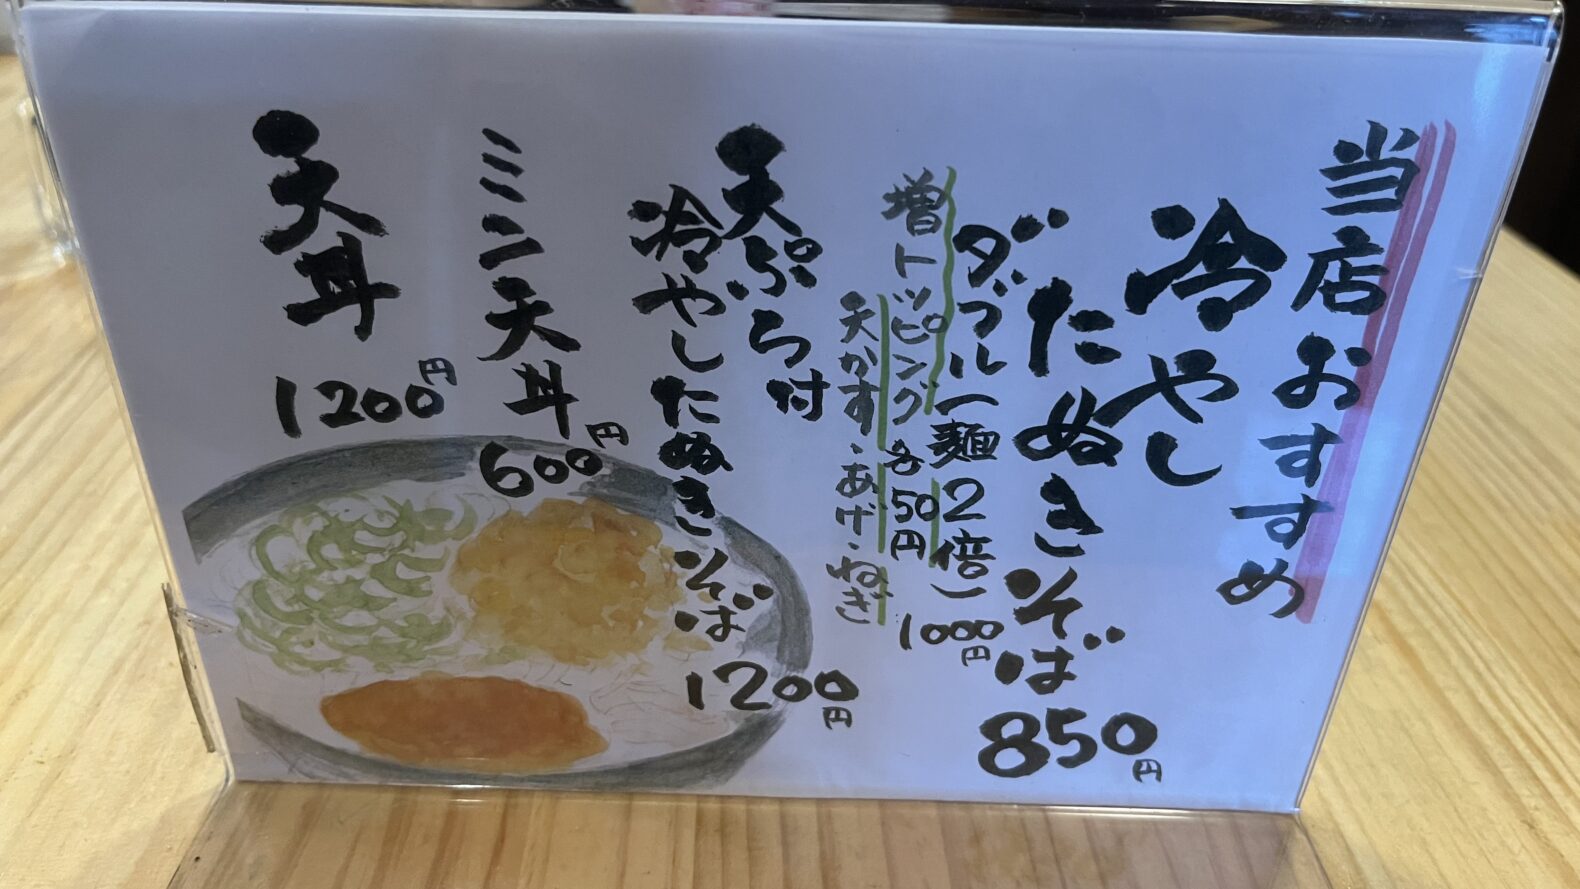 当店おすすめ
冷やし
たぬきそば 850円
ダブル(麺2倍) 1000円
増トッピング各50円
天かす・あげ・ねぎ
天ぷら付
冷やしたぬきそば 1200円
ミニ天丼 600円
天丼 1200円